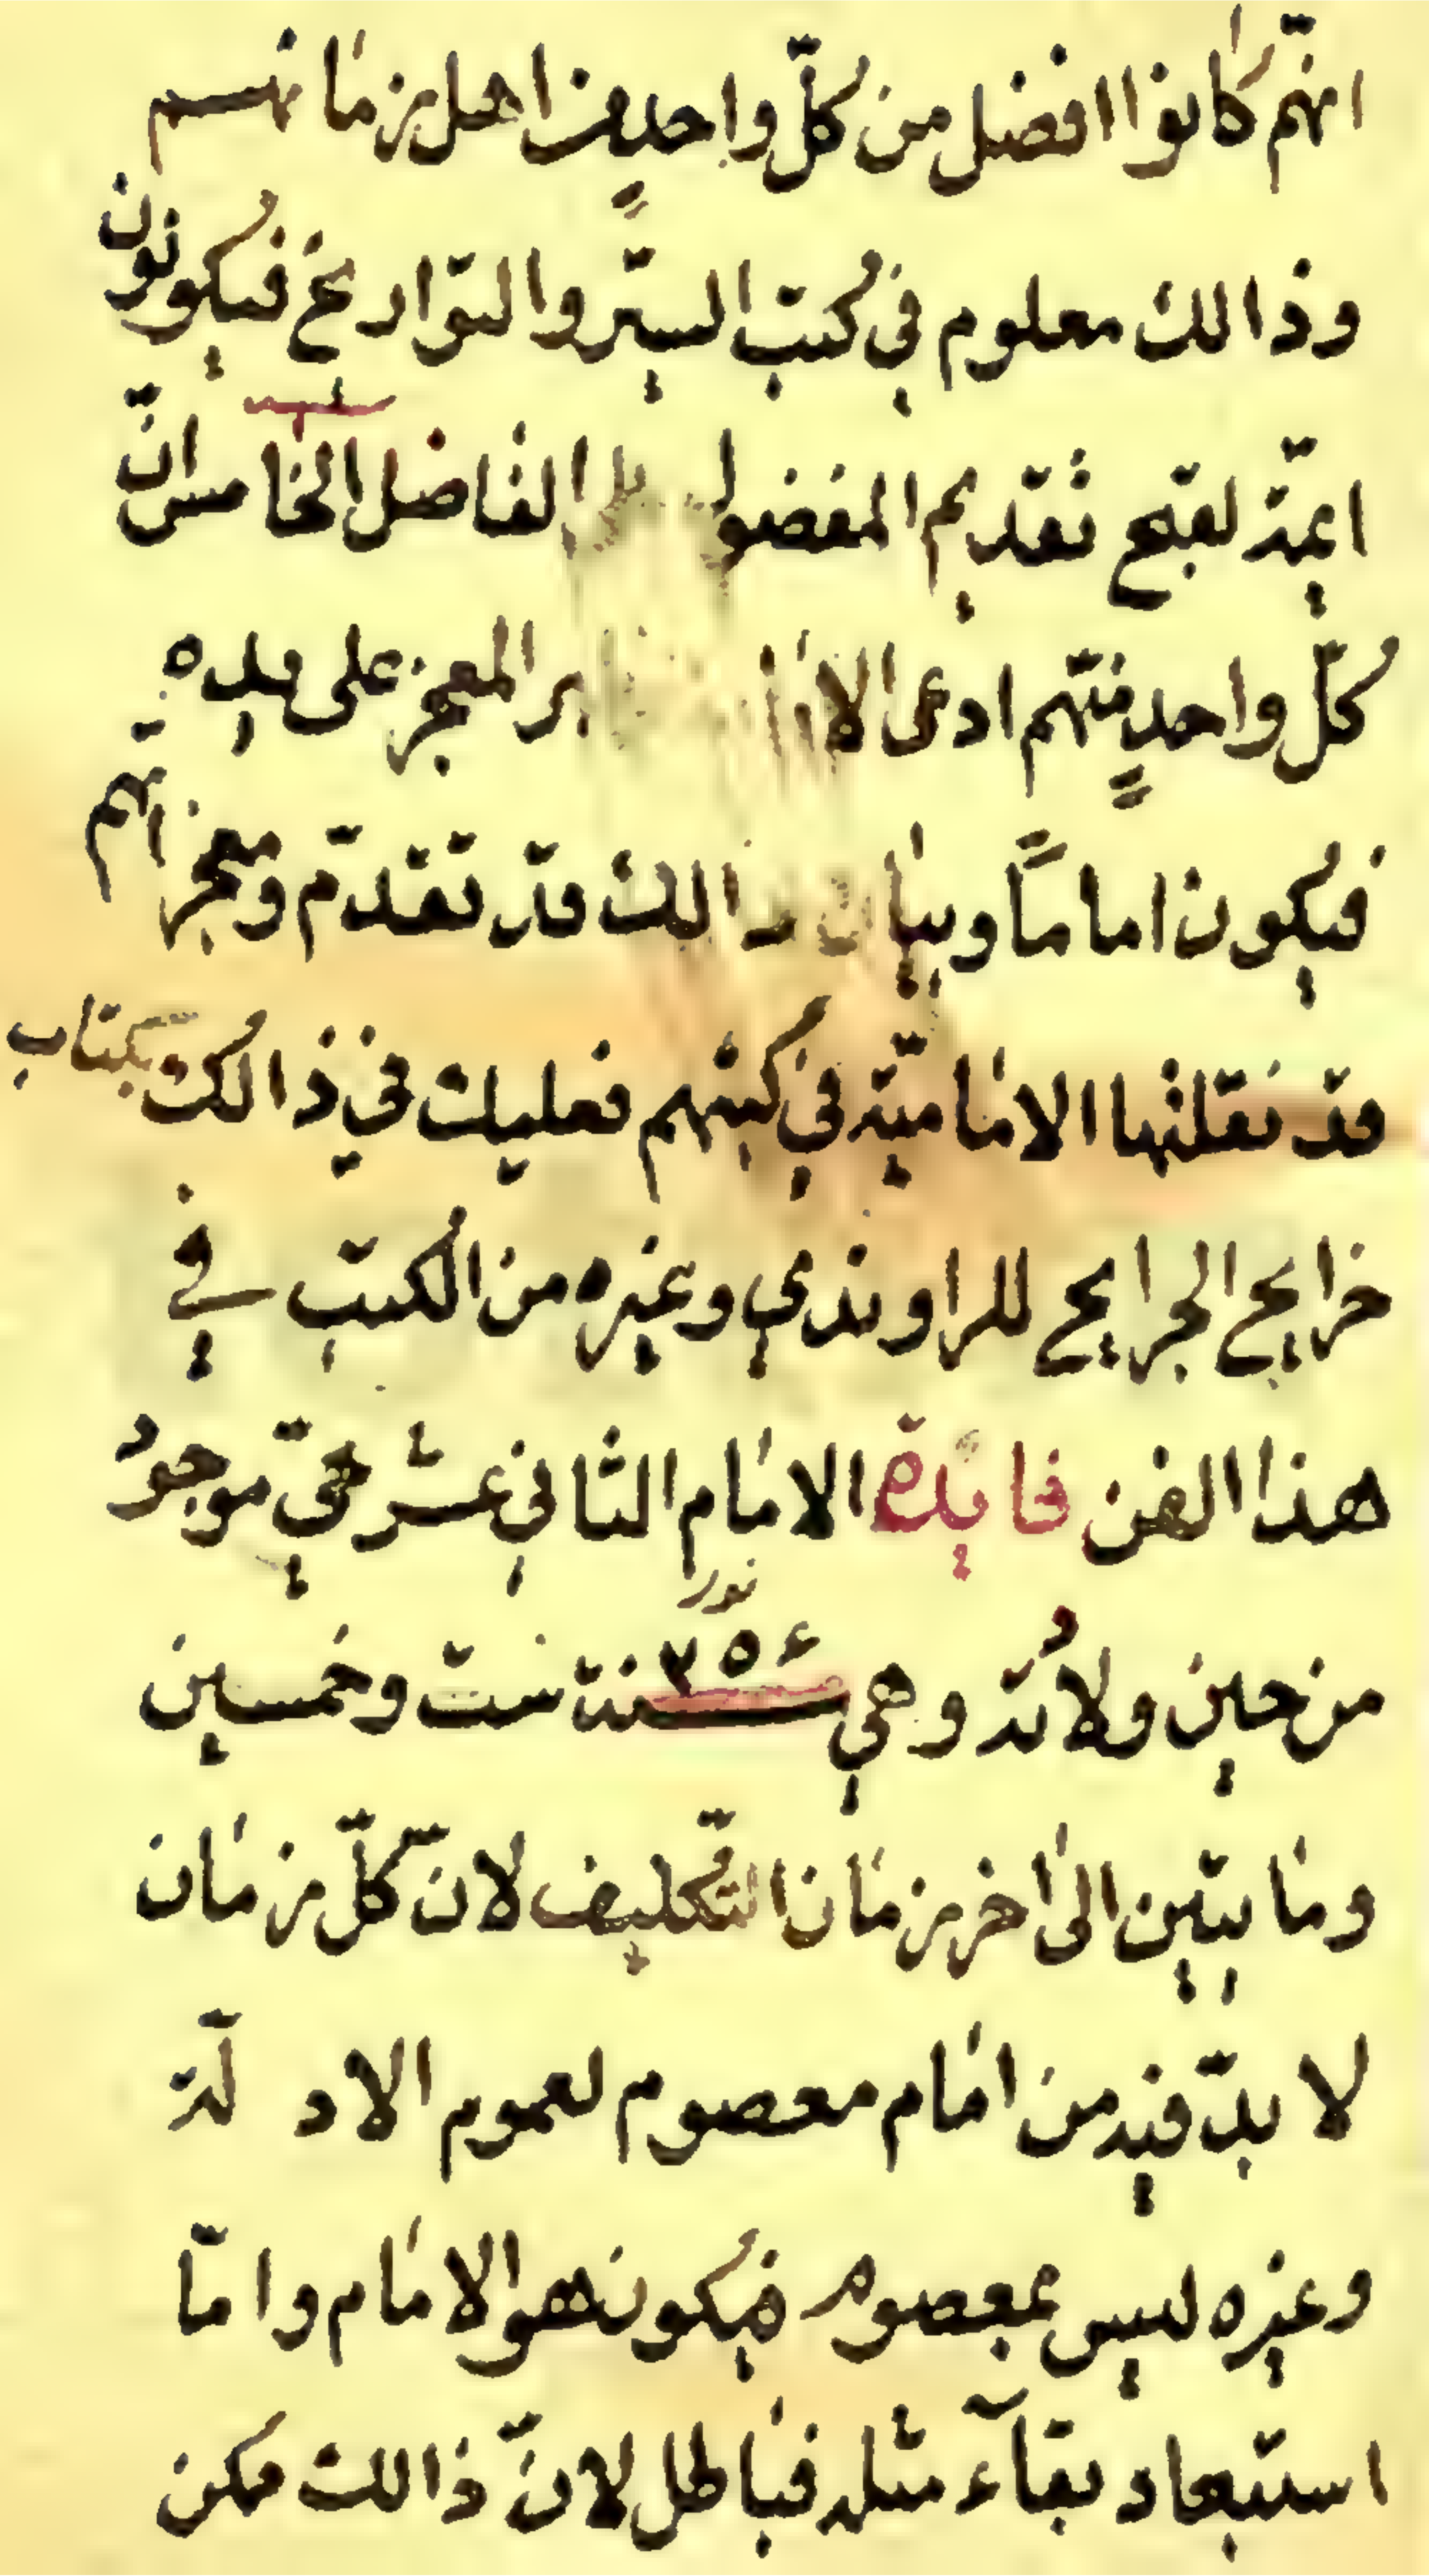 انهّم كانوا افضل من كلّ واحدٍ من اهل زمانهم
وذالك معلوم في كتب السيّر والتواريخ فيكونون
ايمّة لقبح تقديم المفضول الفاضل الخامس انّ
كلّ واحدٍ منهم ادعى المعجز على يده
فيكون اماماً وبيان ذالك قد تقدّم ومعجزاتهم
قد نقلتها الاماميّة في كتبهم فعليك في ذالك بكتاب
خرايج الجرايح للراوندي وغيره من الكتب في
هذا الفن فايدة الامام الثاني عشر حيّ موجودُ
نور
من حين ولادُته وهي سنة ٢٥٤ ست وخمسين
ومايتين الى اخر زمان التكليف لانّ كلّ زمان
لا بدّ فيه من امام معصوم لعموم الادلّة
وغيره ليس بمعصوم فيكون هو الامام وامّا
استبعاد بقآء مثله فباطل لانّ ذالك ممكن